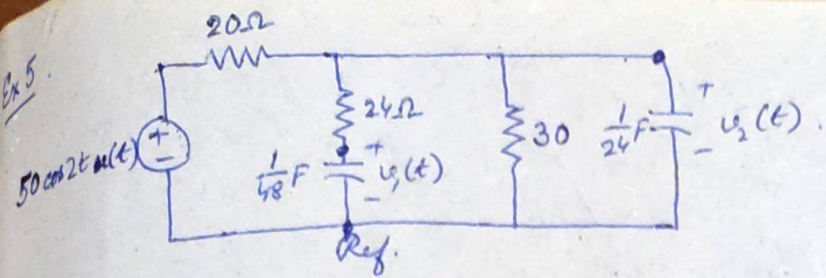 Ex 5.
20Ω
50 cos 2t u(t)
+
-
24Ω
1/48 F
+
v₁(t)
-
30
1/24 F
+
v₂(t).
-
Ref.